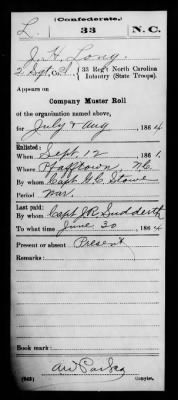 (Confederate.)
L. 33 N.C.
J. F. Long
2 Sergt., Co. I, 33 Reg't North Carolina
Infantry (State Troops).
Appears on
Company Muster Roll
of the organization named above,
for July & Aug, 1864
Enlisted:
When Sept. 12, 1861.
Where N.C.
By whom Capt. G. C. Stowe
Period War.
Last paid:
By whom Capt. J. R. Sudderth
To what time June 30, 1864
Present or absent Present
Remarks:
Book mark:
(642)
Copyist.